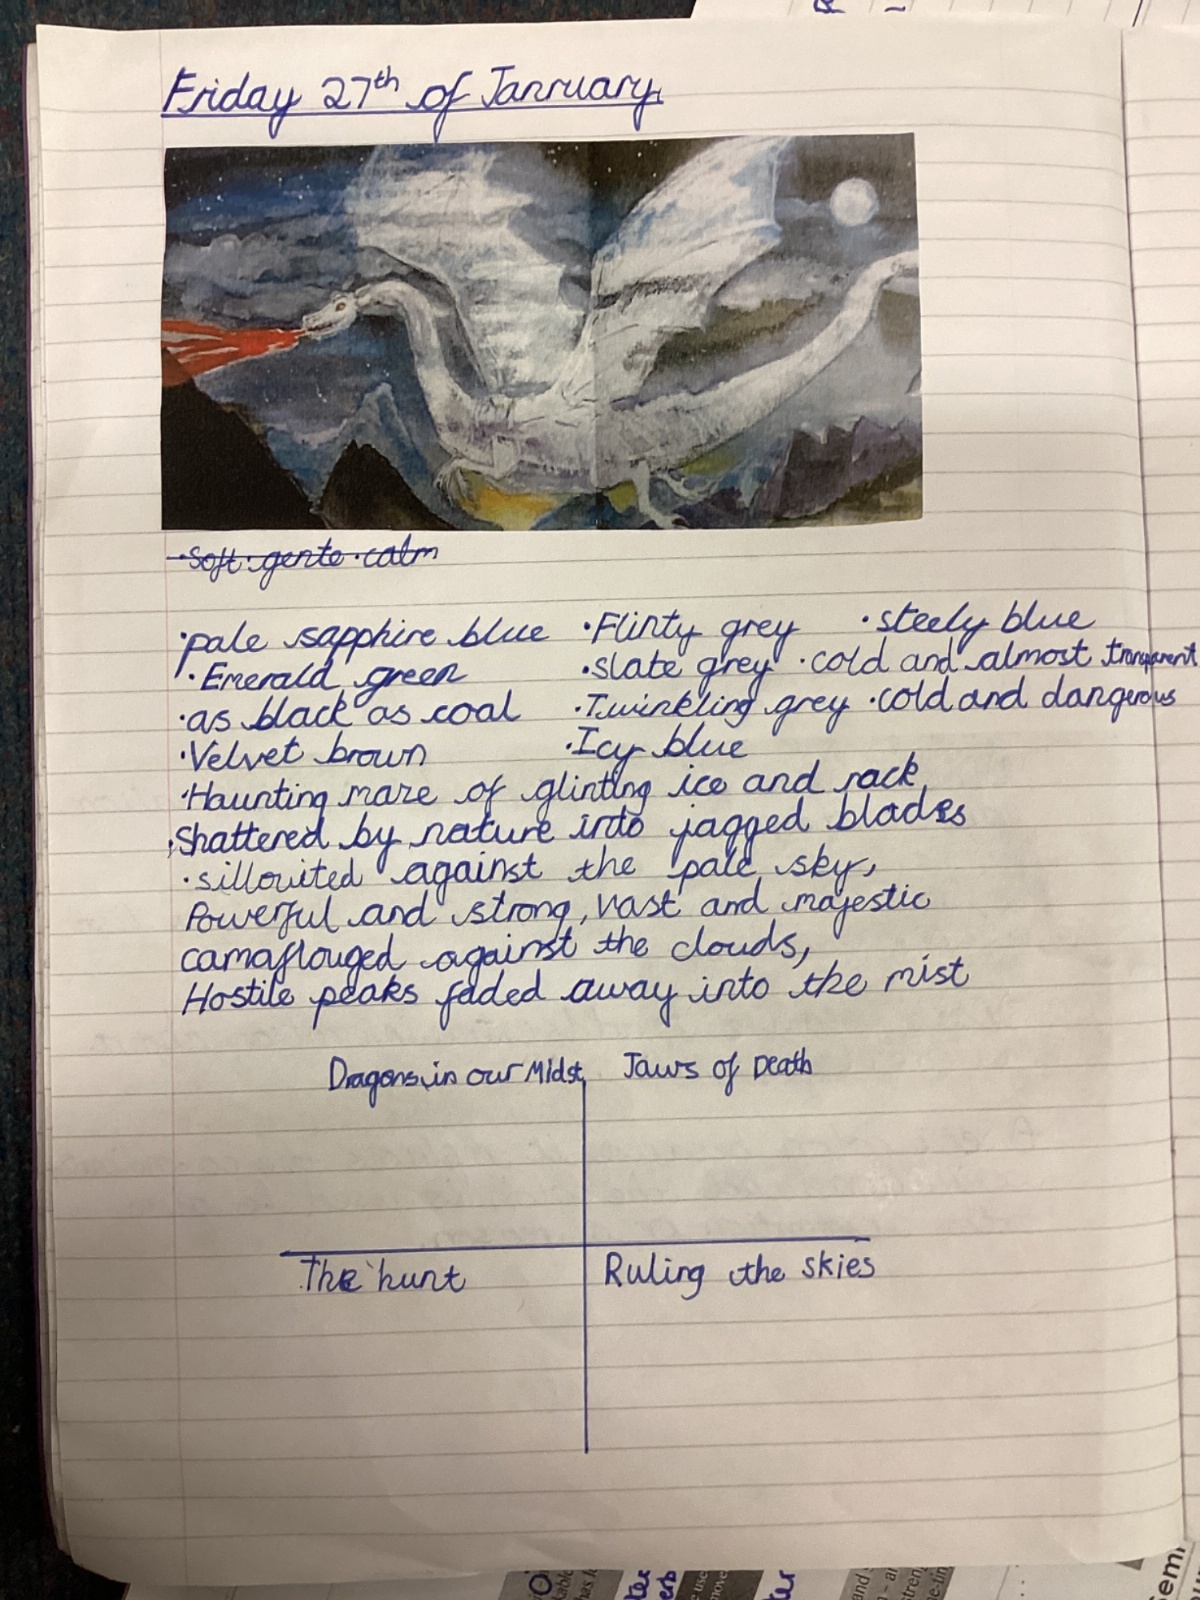 Friday 27th of Janruary.
·Soft·gente·calm
·pale sapphire blue ·Flinty grey ·steely blue
·Emerald green ·slate grey ·cold and almost transparent
·as black as coal ·Twinkling grey ·cold and dangerous
·Velvet brown ·Icy blue
·Haunting maze of glinting ice and rack
·Shattered by nature into jagged blades
·sillouited against the pale sky,
Powerful and strong, vast and majestic
camaflouged against the clouds,
Hostile peaks faded away into the mist
Dragons in our Midst Jaws of Death
The hunt Ruling the skies